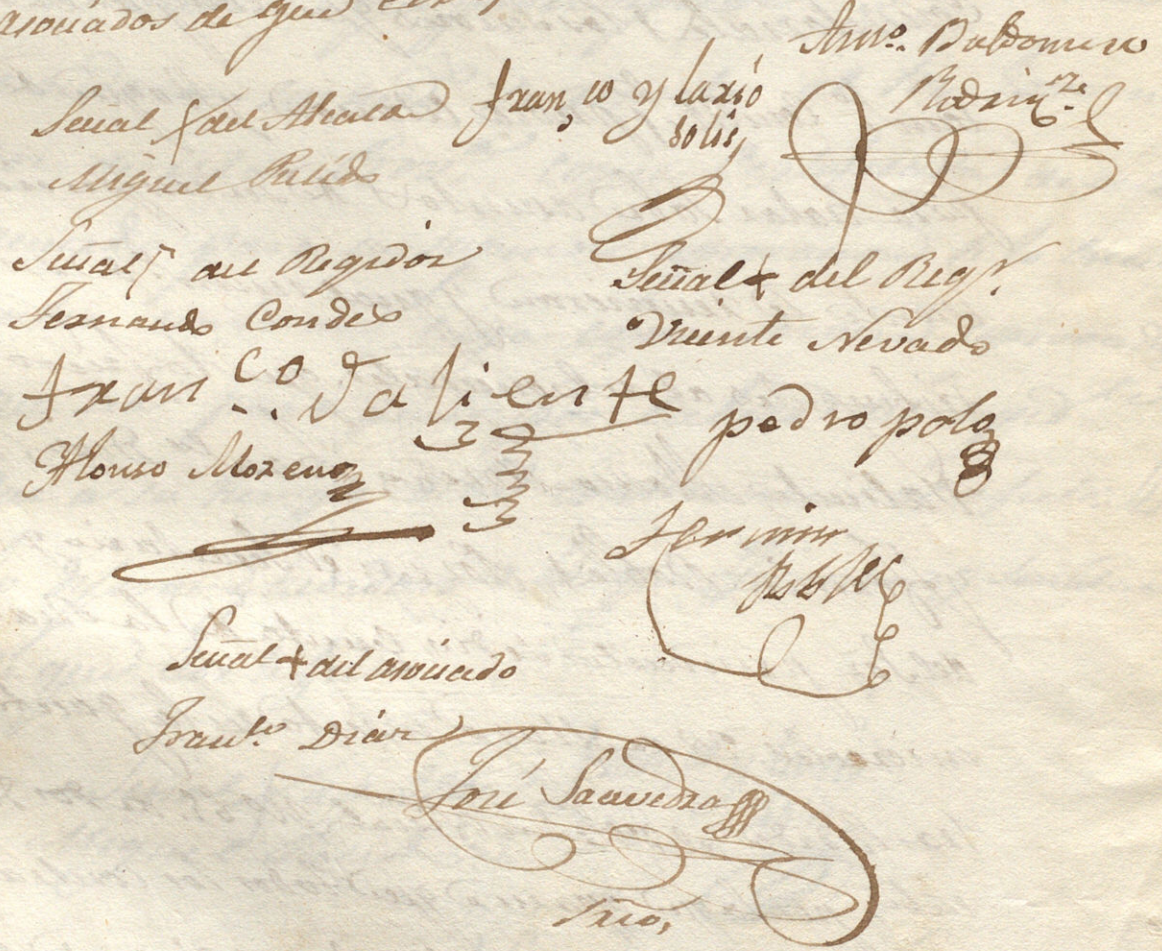 asociados de que
Señal + del Alcalde
Miguel Pulido
Fran,co Ylario
Solis,
Anto. Baldomero
Rodrigz.
Señal + del Regidor
Fernando Condes
Señal + del Regr.
Vicente Nevado
Franco.. Valiente
pedro polo
Alonso Moreno
Fermin
Robles
Señal + del asociado
Franco. Diaz
José Saavedra
Srio,